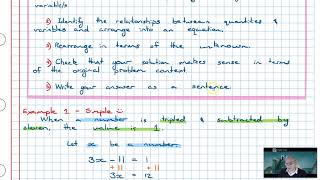 variable/s
2) Identify the relationships between quantities &
variables and arrange into an equation.
3) Rearrange in terms of the unknown.
4) Check that your solution makes sense in terms
of the original problem context
5) Write your answer as a sentence.
Example 1 - Simple :)
When a number is tripled & subtracted by
eleven, the value is 1.
Let x be a number.
3x - 11 = 1
+11 +11
3x = 12